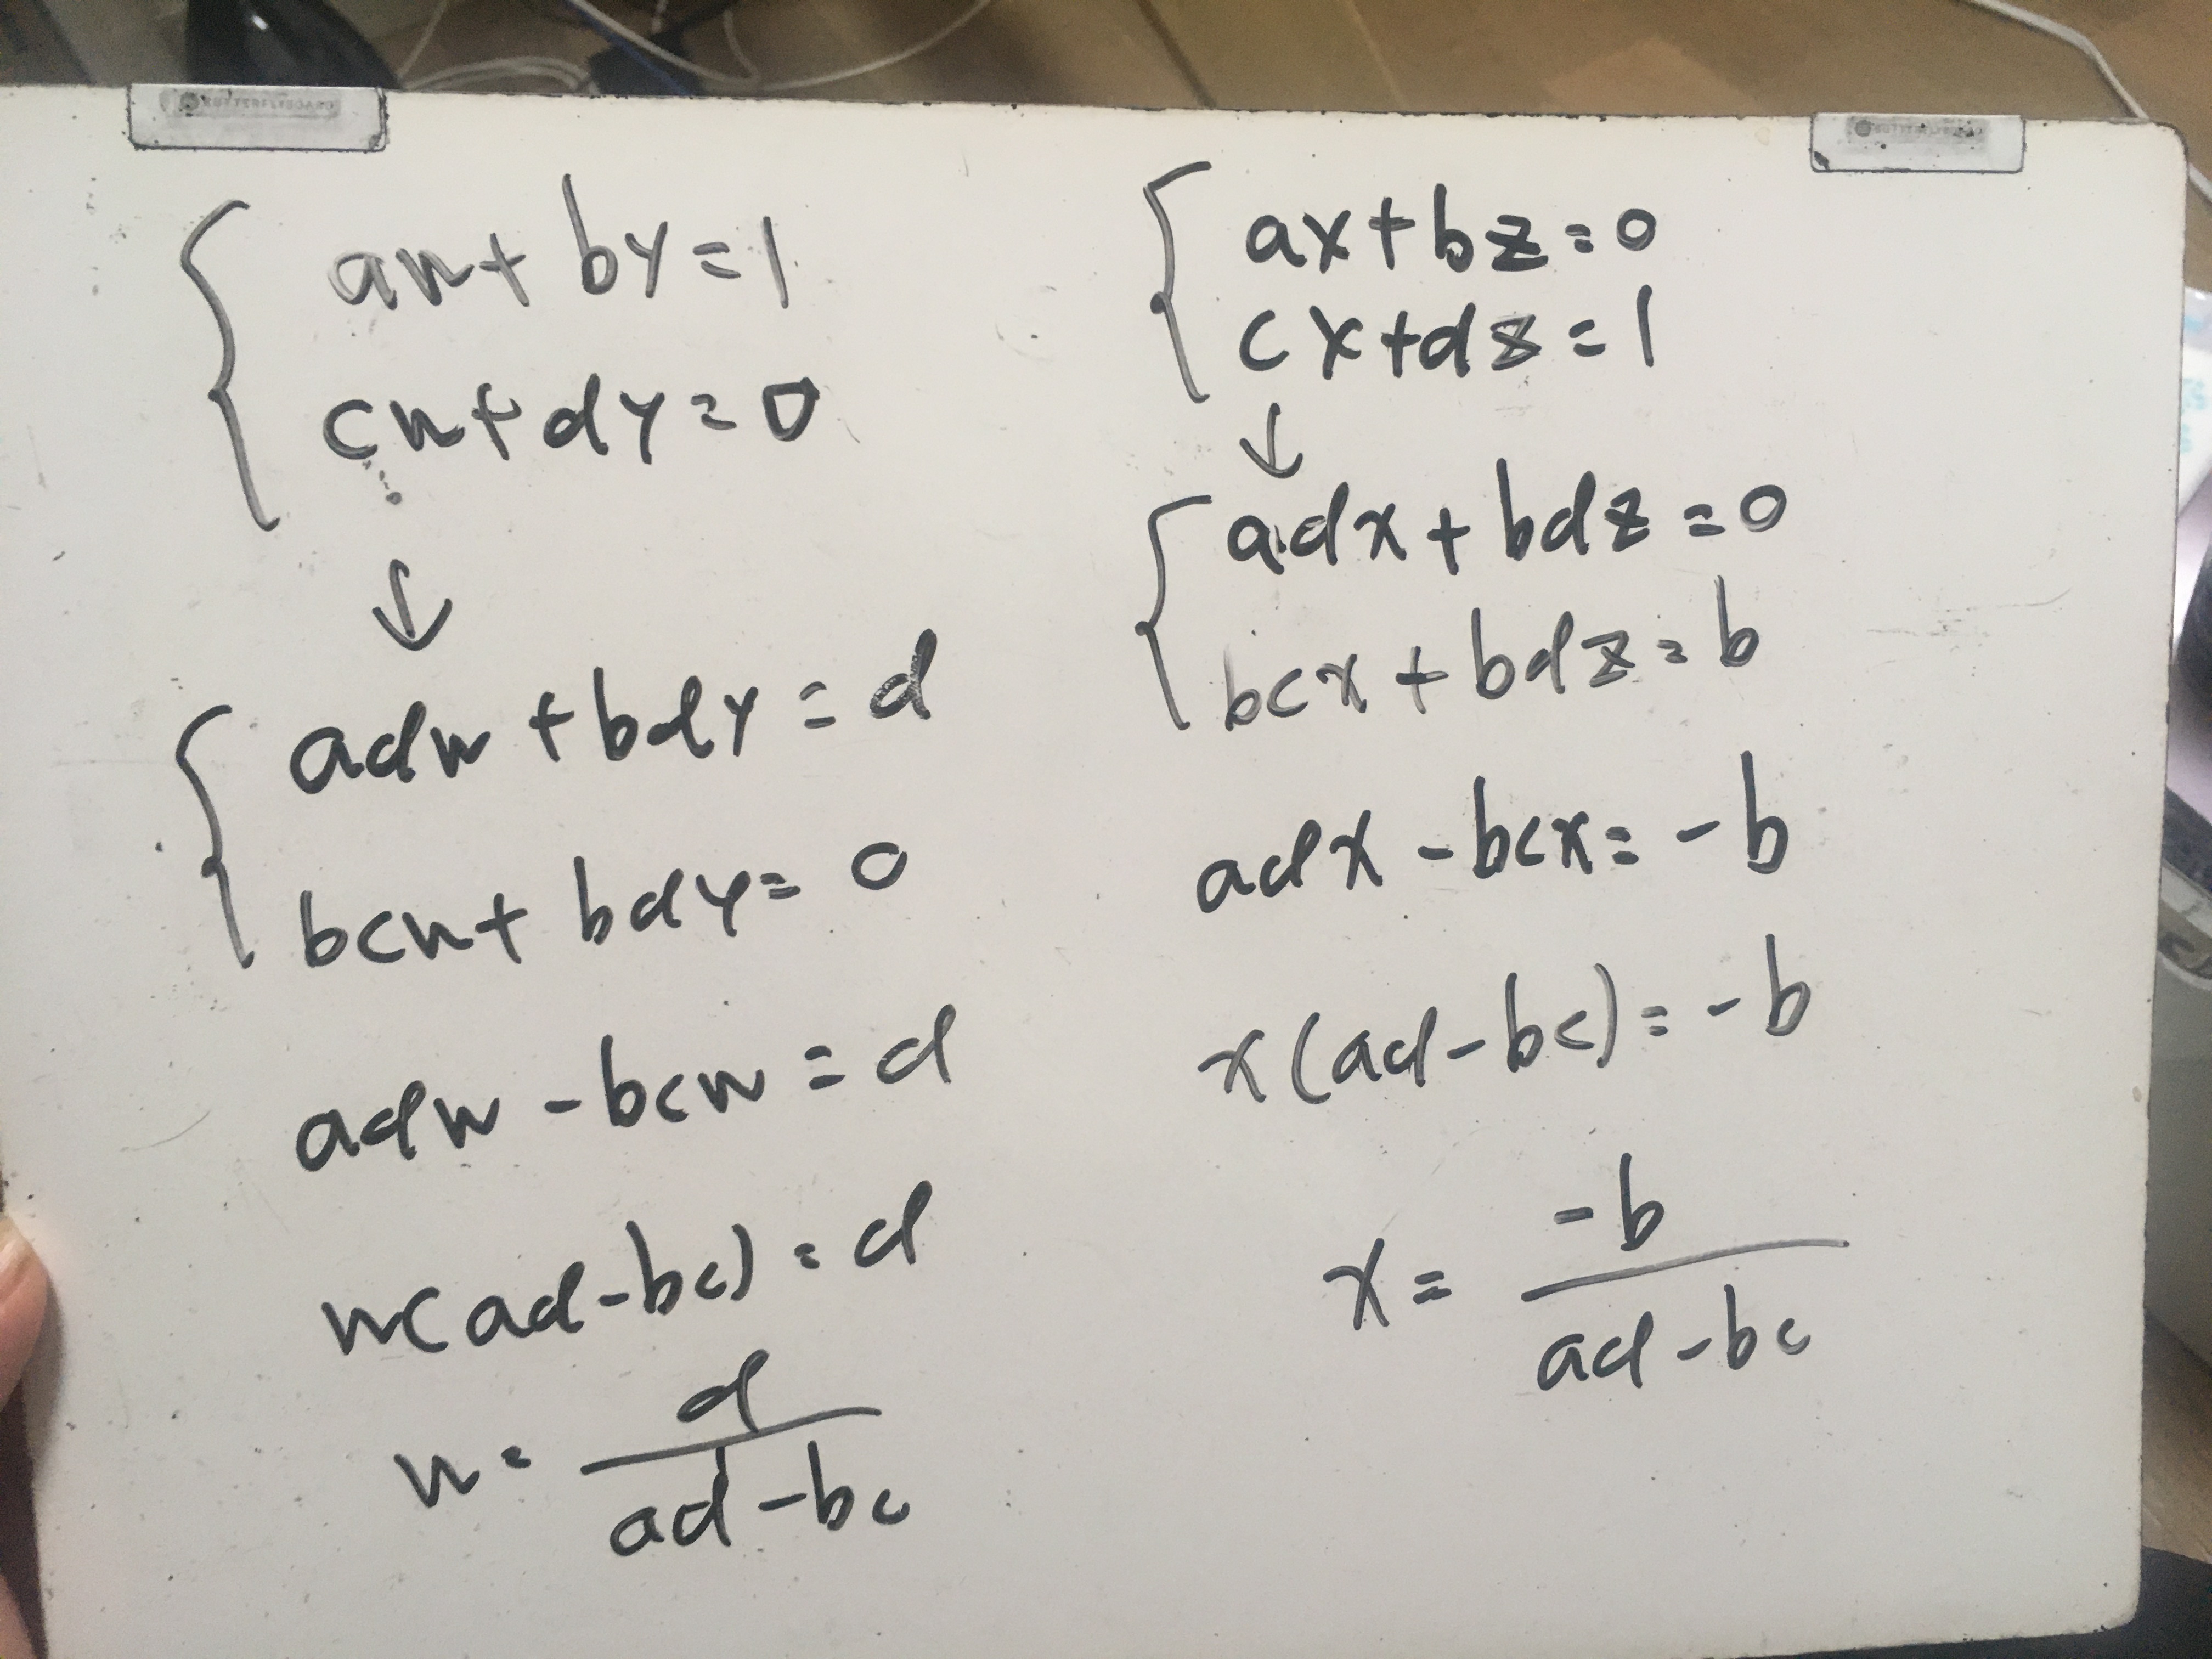 aw + by = 1
cw + dy = 0
↓
adw + bdy = d
bcw + bdy = 0
adw - bcw = d
w(ad - bc) = d
w = d / ad - bc
ax + bz = 0
cx + dz = 1
↓
adx + bdz = 0
bcx + bdz = b
adx - bcx = -b
x(ad - bc) = -b
x = -b / ad - bc